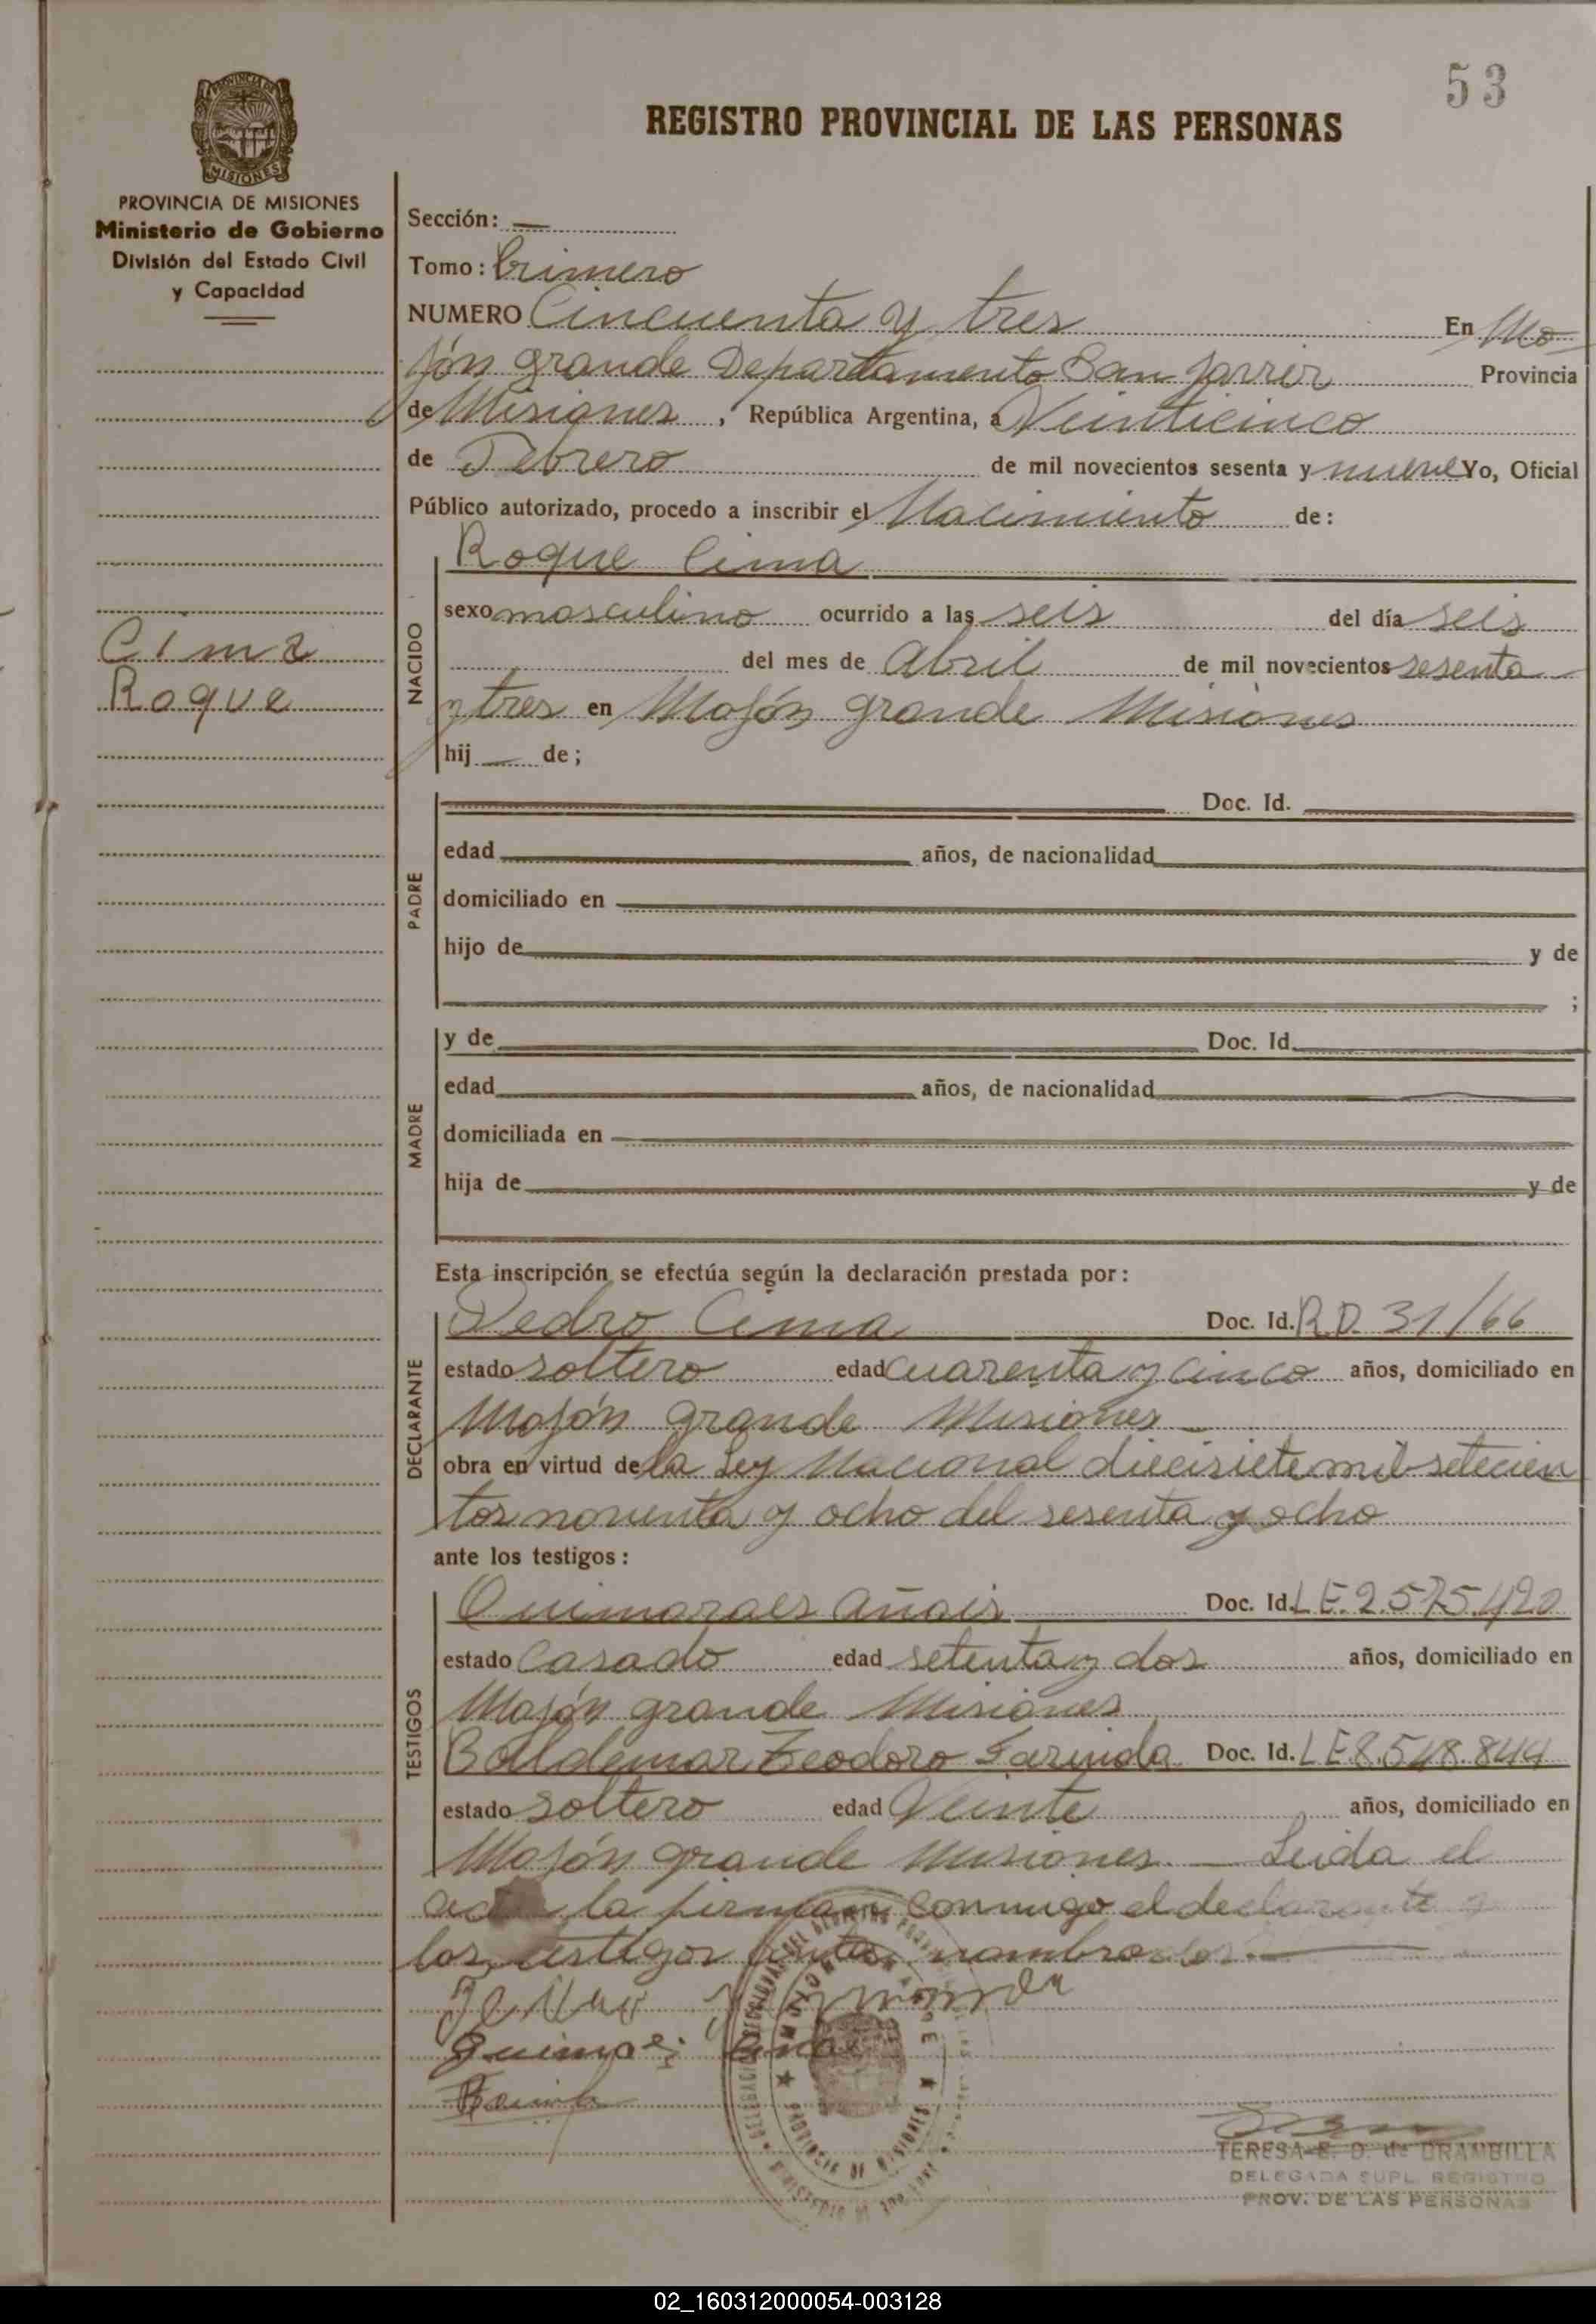 53
REGISTRO PROVINCIAL DE LAS PERSONAS
PROVINCIA DE MISIONES
Ministerio de Gobierno
División del Estado Civil
y Capacidad
Sección: —
Tomo: Primero
NUMERO Cincuenta y tres En Mo
jón grande Departamento San Javier Provincia
de Misiones, República Argentina, a Veinticinco
de Febrero de mil novecientos sesenta y nueve Yo, Oficial
Público autorizado, procedo a inscribir el Nacimiento de:
Cima
Roque
NACIDO
Roque Cima
sexo masculino ocurrido a las seis del día seis
del mes de Abril de mil novecientos sesenta
y tres en Mojón grande Misiones
hij — de;
PADRE
Doc. Id.
edad años, de nacionalidad
domiciliado en
hijo de y de
;
MADRE
y de Doc. Id.
edad años, de nacionalidad
domiciliada en
hija de y de
Esta inscripción se efectúa según la declaración prestada por:
DECLARANTE
Pedro Cima Doc. Id. R.D. 31/66
estado soltero edad cuarenta y cinco años, domiciliado en
Mojón grande Misiones
obra en virtud de la Ley Nacional diecisiete mil setecien
tos noventa y ocho del sesenta y ocho
ante los testigos:
TESTIGOS
Guimaraes Doc. Id. L E. 2.575.420
estado Casado edad setenta y dos años, domiciliado en
Mojón grande Misiones
Baldemar Teodoro Doc. Id. L E 8.548.844
estado soltero edad Veinte años, domiciliado en
Mojón grande Misiones. — Leida el
acta la firman conmigo el declarante y
los testigos antes nombrados. —
PROVINCIA DE MISIONES
TERESA E. D. de BRAMBILLA
DELEGADA SUPL. REGISTRO
PROV. DE LAS PERSONAS
02_160312000054-003128